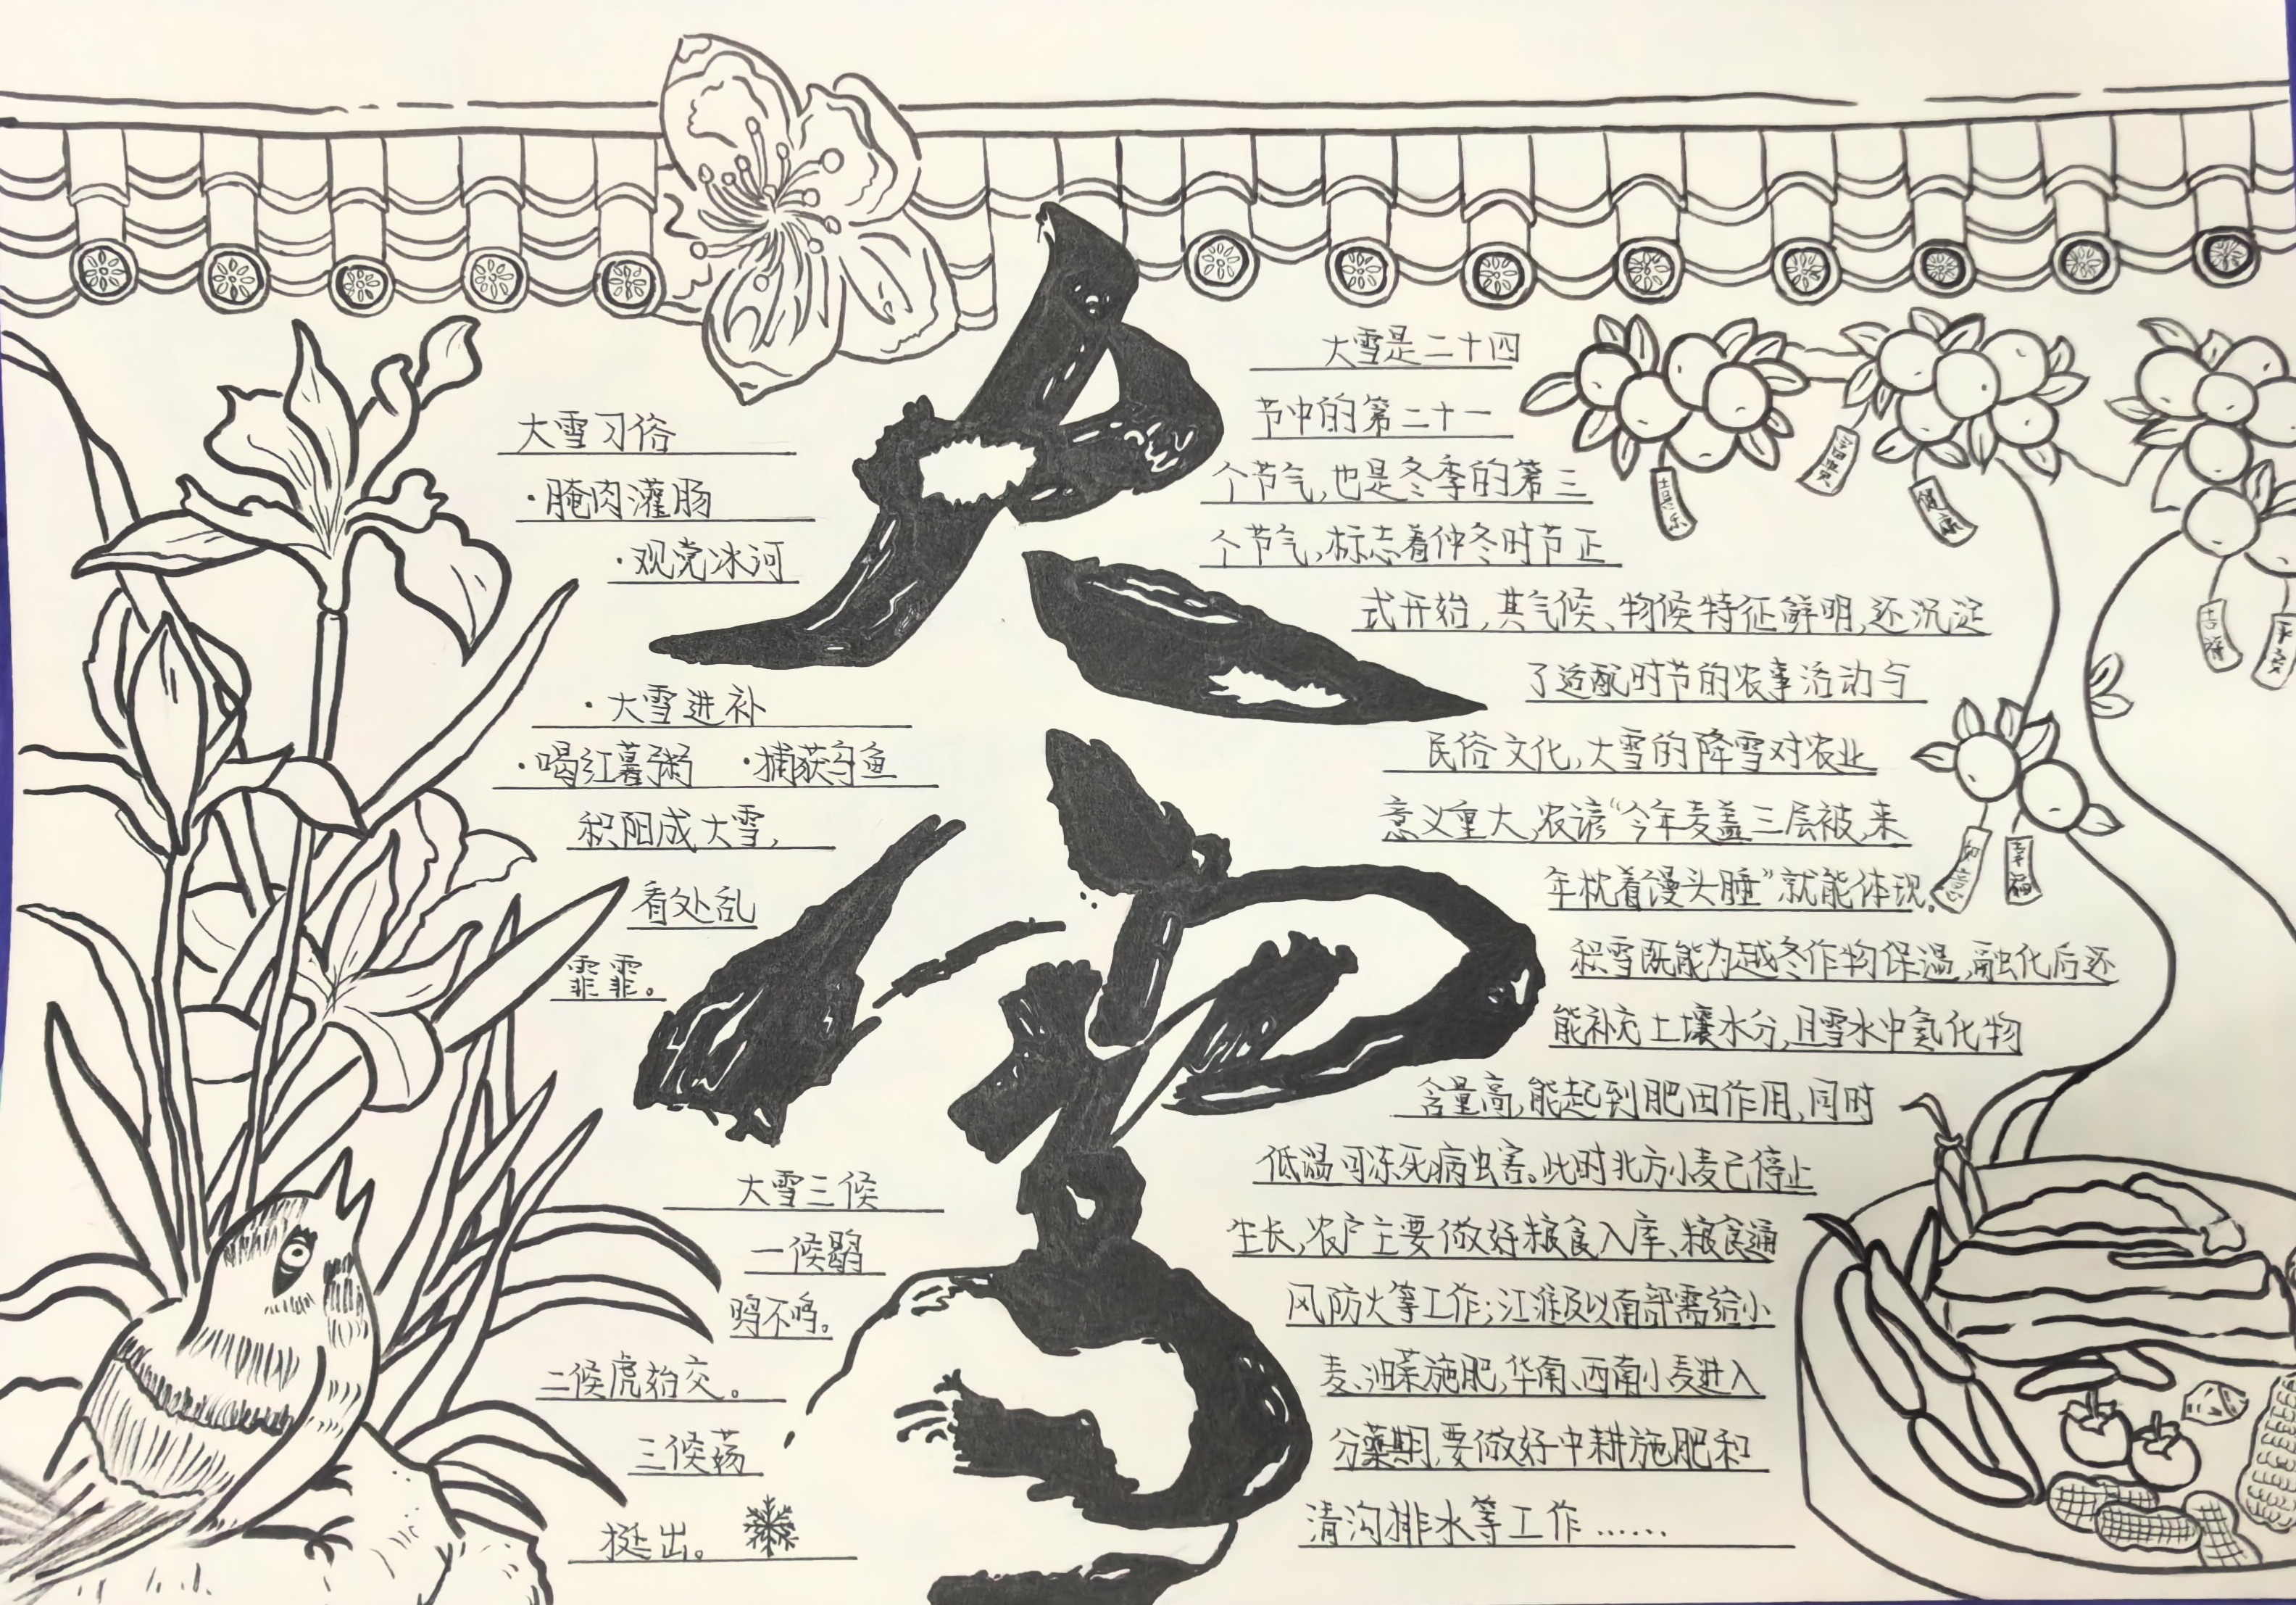 大雪
大雪习俗
·腌肉灌肠
·观赏冰河
·大雪进补
·喝红薯粥 ·捕获乌鱼
积阴成大雪,
看处乱
霏霏。
大雪三候
一候鹖
鸣不鸣。
二候虎始交。
三候荔
挺出。
大雪是二十四
节中的第二十一
个节气,也是冬季的第三
个节气,标志着仲冬时节正
式开始,其气候、物候特征鲜明,还沉淀
了适配时节的农事活动与
民俗文化,大雪的降雪对农业
意义重大,农谚“今年麦盖三层被,来
年枕着馒头睡”就能体现.
积雪既能为越冬作物保温,融化后还
能补充土壤水分,且雪水中氮化物
含量高,能起到肥田作用,同时
低温可冻死病虫害。此时北方小麦已停止
生长,农户主要做好粮食入库、粮食通
风防火等工作;江淮及以南部需给小
麦、油菜施肥,华南、西南小麦进入
分蘖期,要做好中耕施肥和
清沟排水等工作……
喜乐
健康
吉祥
平安
如意
幸福